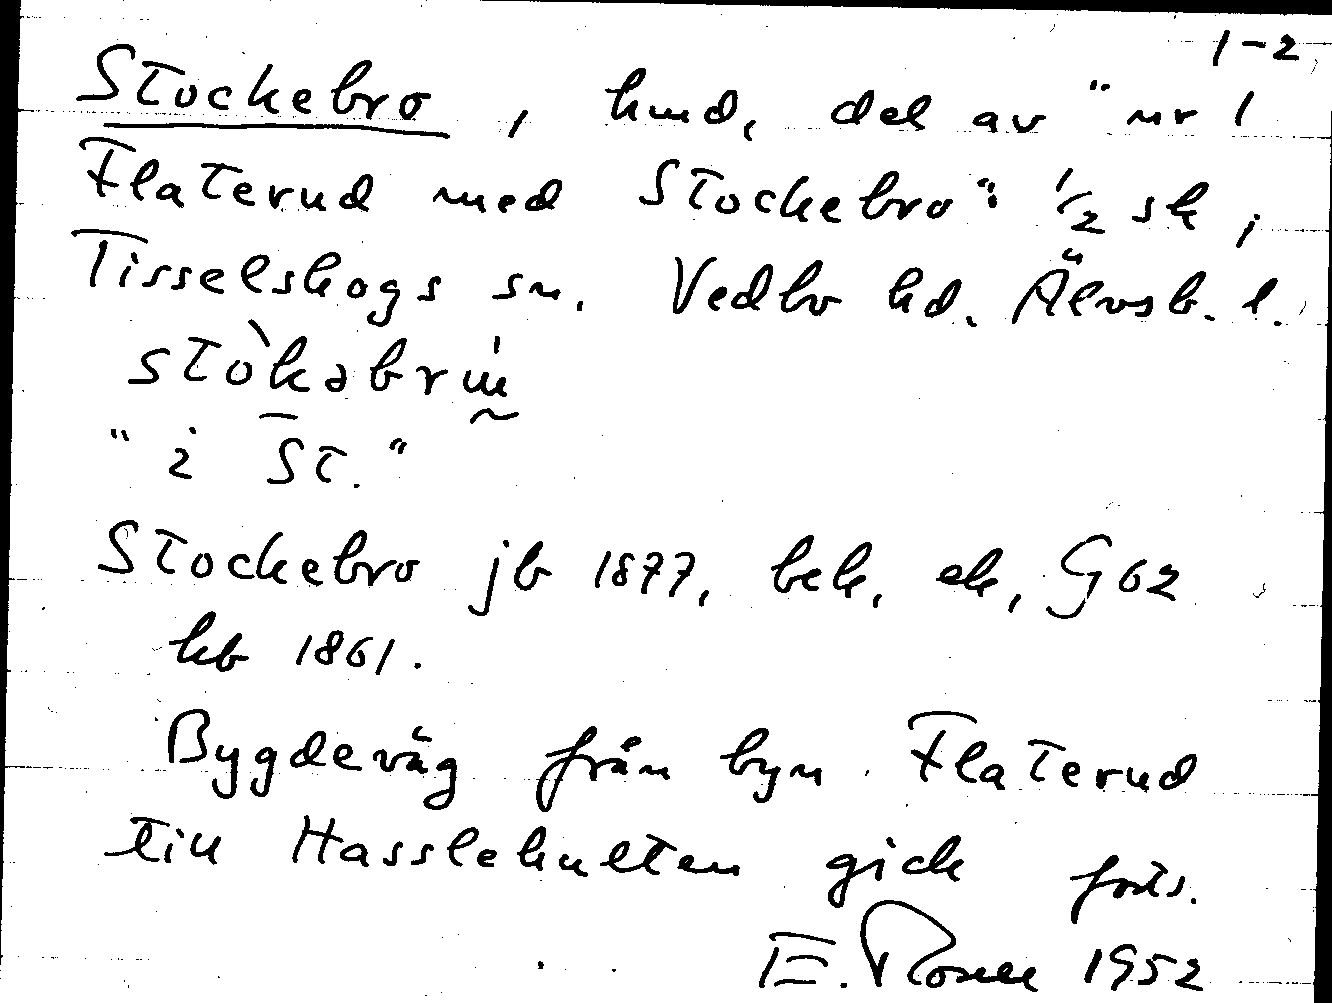 1-2
Stockebro, hmd, del av "nr 1
Flaterud med Stockebro" 1/2 sk,
Tisselskogs sn. Vedbo hd. Älvsb. l.
stòkəbrẁ
"i St."
Stockebro jb 1877, bek, ek, G 62
kb 1861.
Bygdeväg från byn Flaterud
till Hasslekulten gick forts.
E. Rosell 1952